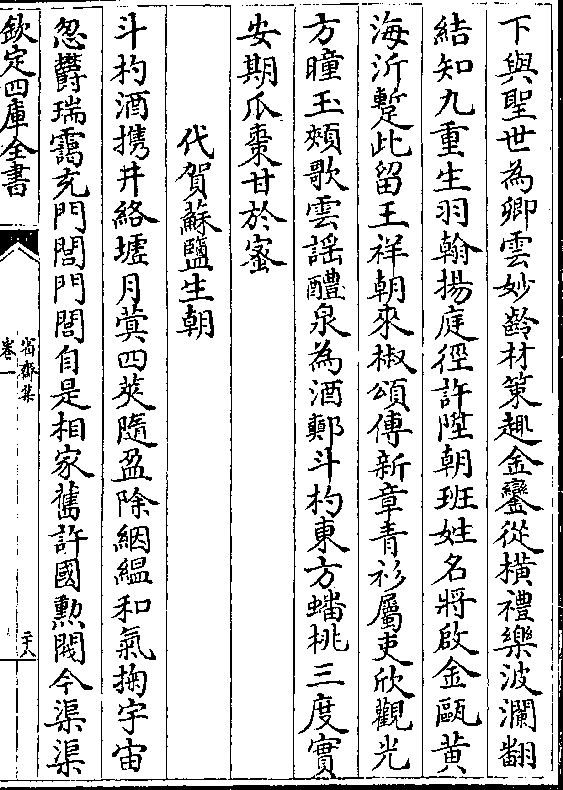 下與聖世為卿雲妙齡材策趣金鑾從橫禮樂波瀾翻
結知九重生羽翰揚庭徑許陞朝班姓名將啟金甌黄
海沂蹔此留王祥朝來椒頌傳新章青衫屬吏欣觀光
方瞳玉頰歌雲謡醴泉為酒鄭斗杓東方蟠桃三度實
安期瓜棗甘於蜜
代賀蘇鹽生朝
斗杓酒携井絡墟月蓂四莢隨盈除絪緼和氣掬宇宙
忽欝瑞靄充門閭門閭自是相家舊許國勲閥今渠渠
欽定四庫全書
省齋集
卷一
二十八